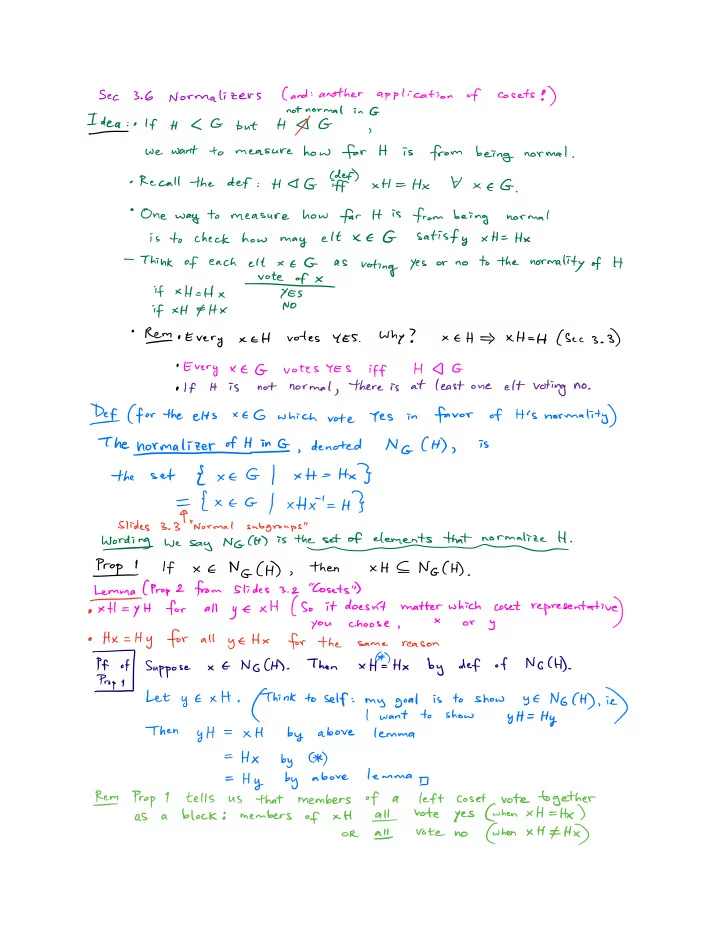 Sec 3.6 Normalizers (and: another application of cosets!)
not normal in G
Idea: • If H < G but H ⋪ G ,
we want to measure how far H is from being normal.
- Recall the def: H ◁ G iff (def) xH = Hx ∀ x ∈ G.
• One way to measure how far H is from being normal
is to check how may elt x ∈ G satisfy xH = Hx
- Think of each elt x ∈ G as voting yes or no to the normality of H
vote of x
if xH = Hx YES
if xH ≠ Hx NO
• Rem • Every x ∈ H votes YES. Why? x ∈ H ⟹ xH = H (Sec 3.3)
• Every x ∈ G votes YES iff H ◁ G
• If H is not normal, there is at least one elt voting no.
Def (for the elts x ∈ G which vote Yes in favor of H's normality)
The normalizer of H in G, denoted N_G (H), is
the set { x ∈ G | xH = Hx }
= { x ∈ G | xHx⁻¹ = H }
Slides 3.3 "Normal subgroups"
Wording We say N_G(H) is the set of elements that normalize H.
Prop 1 If x ∈ N_G(H), then xH ⊆ N_G(H).
Lemma (Prop 2 from Slides 3.2 "Cosets")
• xH = yH for all y ∈ xH (So it doesn't matter which coset representative
you choose, x or y)
• Hx = Hy for all y ∈ Hx for the same reason
Pf of Prop 1 Suppose x ∈ N_G(H). Then xH (*)= Hx by def of N_G(H).
Let y ∈ xH. (Think to self: my goal is to show y ∈ N_G(H), ie
I want to show yH = Hy)
Then yH = xH by above lemma
= Hx by (*)
= Hy by above lemma □
Rem Prop 1 tells us that members of a left coset vote together
as a block: members of xH all vote yes (when xH = Hx)
OR all vote no (when xH ≠ Hx)